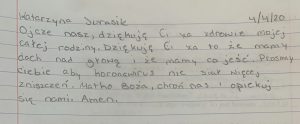 Katarzyna Jurasik 4/4/20
Ojcze nasz, dziękuję Ci za zdrowie mojej
całej rodziny. Dziękuję Ci za to że mamy
dach nad głową i że mamy co jeść. Prosimy
ciebie aby koronawirus nie siał więcej
zniszczeń. Matko Boża, chroń nas i opiekuj
się nami. Amen.